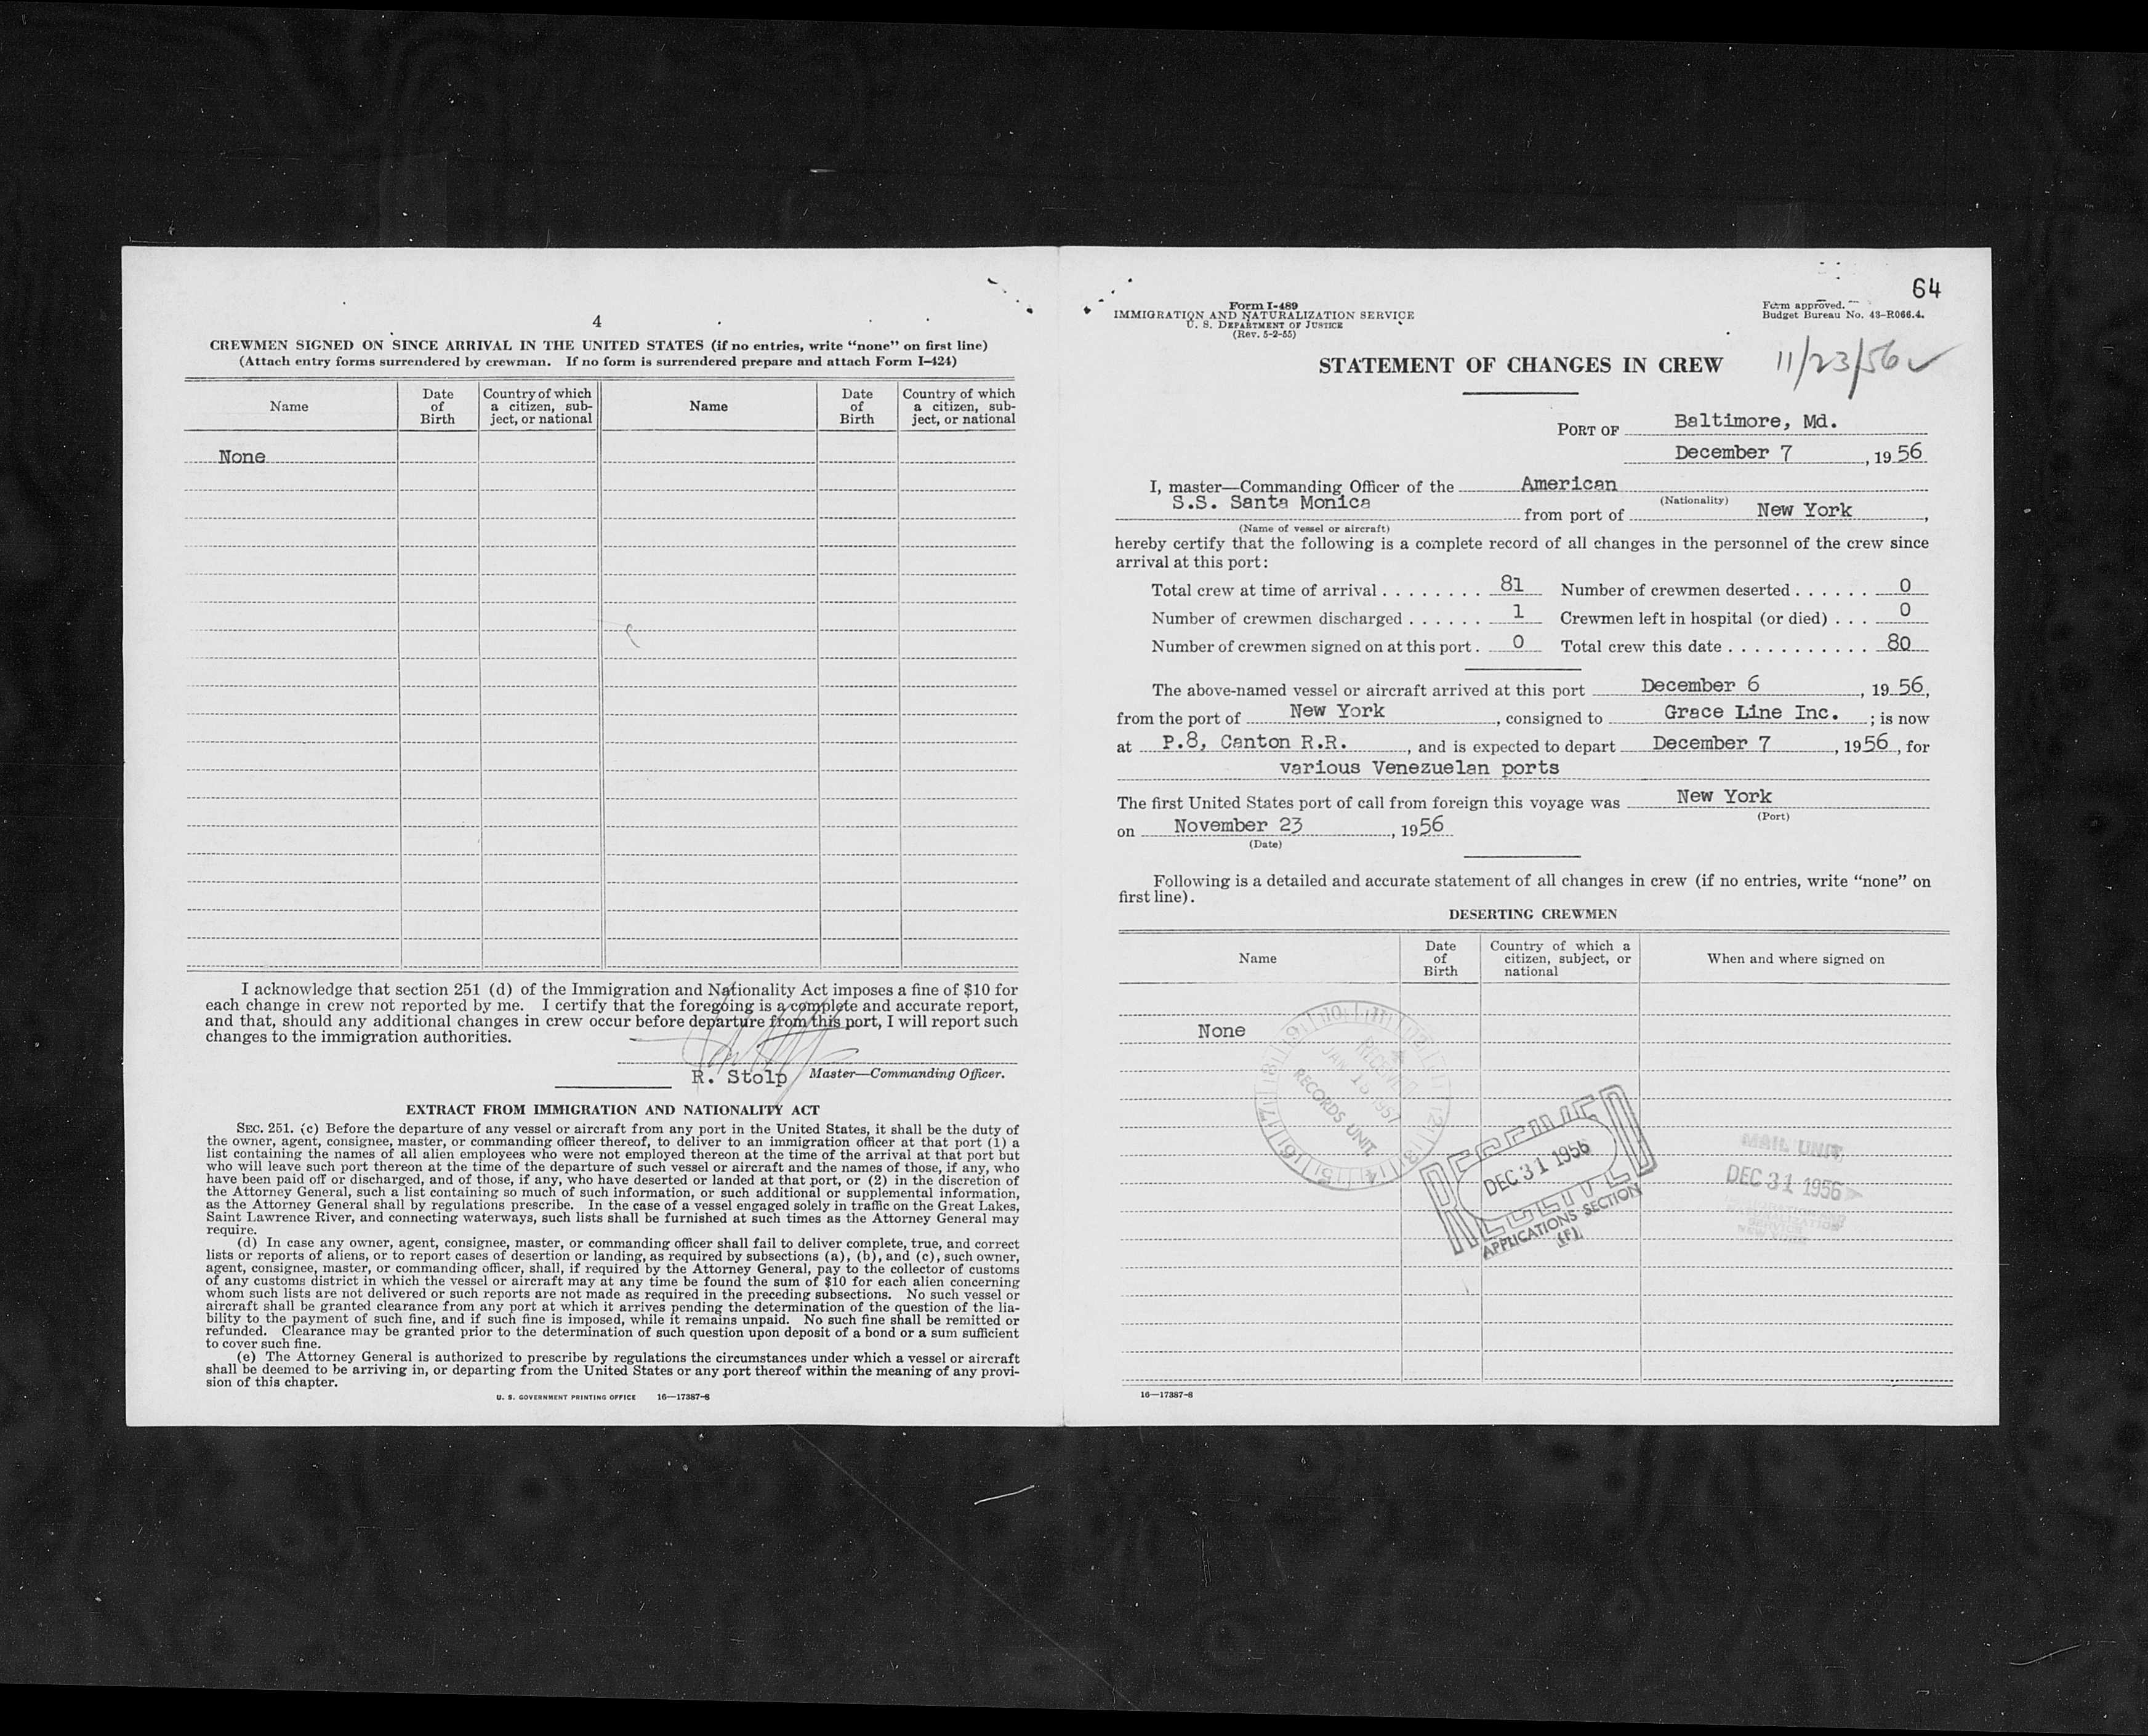 4
CREWMEN SIGNED ON SINCE ARRIVAL IN THE UNITED STATES (if no entries, write “none” on first line)
(Attach entry forms surrendered by crewman. If no form is surrendered prepare and attach Form I-424)
Name
Date of Birth
Country of which a citizen, sub-
ject, or national
Name
Date of Birth
Country of which a citizen, sub-
ject, or national
None
I acknowledge that section 251 (d) of the Immigration and Nationality Act imposes a fine of $10 for
each change in crew not reported by me. I certify that the foregoing is a complete and accurate report,
and that, should any additional changes in crew occur before departure from this port, I will report such
changes to the immigration authorities.
R. Stolp Master—Commanding Officer.
EXTRACT FROM IMMIGRATION AND NATIONALITY ACT
SEC. 251. (c) Before the departure of any vessel or aircraft from any port in the United States, it shall be the duty of
the owner, agent, consignee, master, or commanding officer thereof, to deliver to an immigration officer at that port (1) a
list containing the names of all alien employees who were not employed thereon at the time of the arrival at that port but
who will leave such port thereon at the time of the departure of such vessel or aircraft and the names of those, if any, who
have been paid off or discharged, and of those, if any, who have deserted or landed at that port, or (2) in the discretion of
the Attorney General, such a list containing so much of such information, or such additional or supplemental information,
as the Attorney General shall by regulations prescribe. In the case of a vessel engaged solely in traffic on the Great Lakes,
Saint Lawrence River, and connecting waterways, such lists shall be furnished at such times as the Attorney General may
require.
(d) In case any owner, agent, consignee, master, or commanding officer shall fail to deliver complete, true, and correct
lists or reports of aliens, or to report cases of desertion or landing, as required by subsections (a), (b), and (c), such owner,
agent, consignee, master, or commanding officer, shall, if required by the Attorney General, pay to the collector of customs
of any customs district in which the vessel or aircraft may at any time be found the sum of $10 for each alien concerning
whom such lists are not delivered or such reports are not made as required in the preceding subsections. No such vessel or
aircraft shall be granted clearance from any port at which it arrives pending the determination of the question of the lia-
bility to the payment of such fine, and if such fine is imposed, while it remains unpaid. No such fine shall be remitted or
refunded. Clearance may be granted prior to the determination of such question upon deposit of a bond or a sum sufficient
to cover such fine.
(e) The Attorney General is authorized to prescribe by regulations the circumstances under which a vessel or aircraft
shall be deemed to be arriving in, or departing from the United States or any port thereof within the meaning of any provi-
sion of this chapter.
U. S. GOVERNMENT PRINTING OFFICE 16—17387-8
64
Form I-489
IMMIGRATION AND NATURALIZATION SERVICE
U. S. DEPARTMENT OF JUSTICE
(Rev. 5-2-55)
Form approved.
Budget Bureau No. 43-R066.4.
STATEMENT OF CHANGES IN CREW
11/23/56
PORT OF Baltimore, Md.
December 7, 1956
I, master—Commanding Officer of the American
(Nationality)
S.S. Santa Monica from port of New York,
(Name of vessel or aircraft)
hereby certify that the following is a complete record of all changes in the personnel of the crew since
arrival at this port:
Total crew at time of arrival . . . . . . . . 81 Number of crewmen deserted . . . . . . 0
Number of crewmen discharged . . . . . . 1 Crewmen left in hospital (or died) . . . 0
Number of crewmen signed on at this port . 0 Total crew this date . . . . . . . . . . . 80
The above-named vessel or aircraft arrived at this port December 6, 1956,
from the port of New York, consigned to Grace Line Inc.; is now
at P.8, Canton R.R., and is expected to depart December 7, 1956, for
various Venezuelan ports
The first United States port of call from foreign this voyage was New York
(Port)
on November 23, 1956
(Date)
Following is a detailed and accurate statement of all changes in crew (if no entries, write “none” on
first line).
DESERTING CREWMEN
Name
Date of Birth
Country of which a
citizen, subject, or
national
When and where signed on
None
RECEIVED
RECORDS UNIT
RECEIVED
DEC 31 1956
APPLICATIONS SECTION
MAIL UNIT
DEC 31 1956
16—17387-8